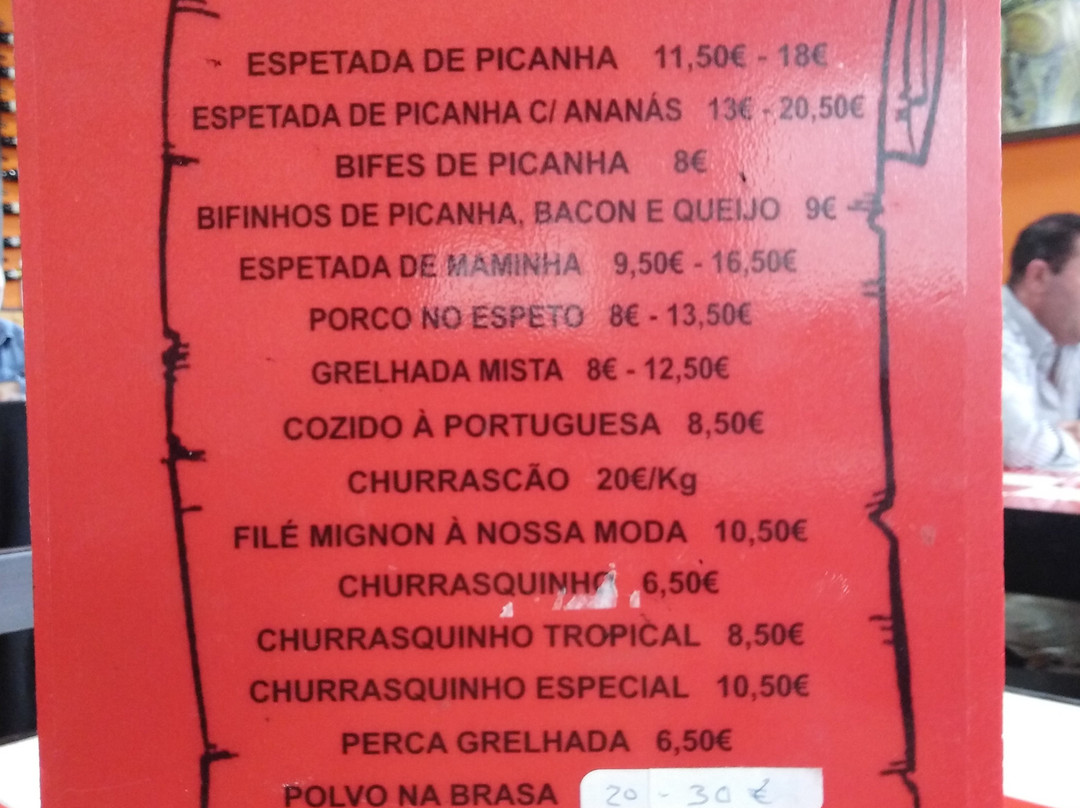 ESPETADA DE PICANHA 11,50€ - 18€
ESPETADA DE PICANHA C/ ANANÁS 13€ - 20,50€
BIFES DE PICANHA 8€
BIFINHOS DE PICANHA, BACON E QUEIJO 9€
ESPETADA DE MAMINHA 9,50€ - 16,50€
PORCO NO ESPETO 8€ - 13,50€
GRELHADA MISTA 8€ - 12,50€
COZIDO À PORTUGUESA 8,50€
CHURRASCÃO 20€/Kg
FILÉ MIGNON À NOSSA MODA 10,50€
CHURRASQUINHO 6,50€
CHURRASQUINHO TROPICAL 8,50€
CHURRASQUINHO ESPECIAL 10,50€
PERCA GRELHADA 6,50€
POLVO NA BRASA 20 - 30 €